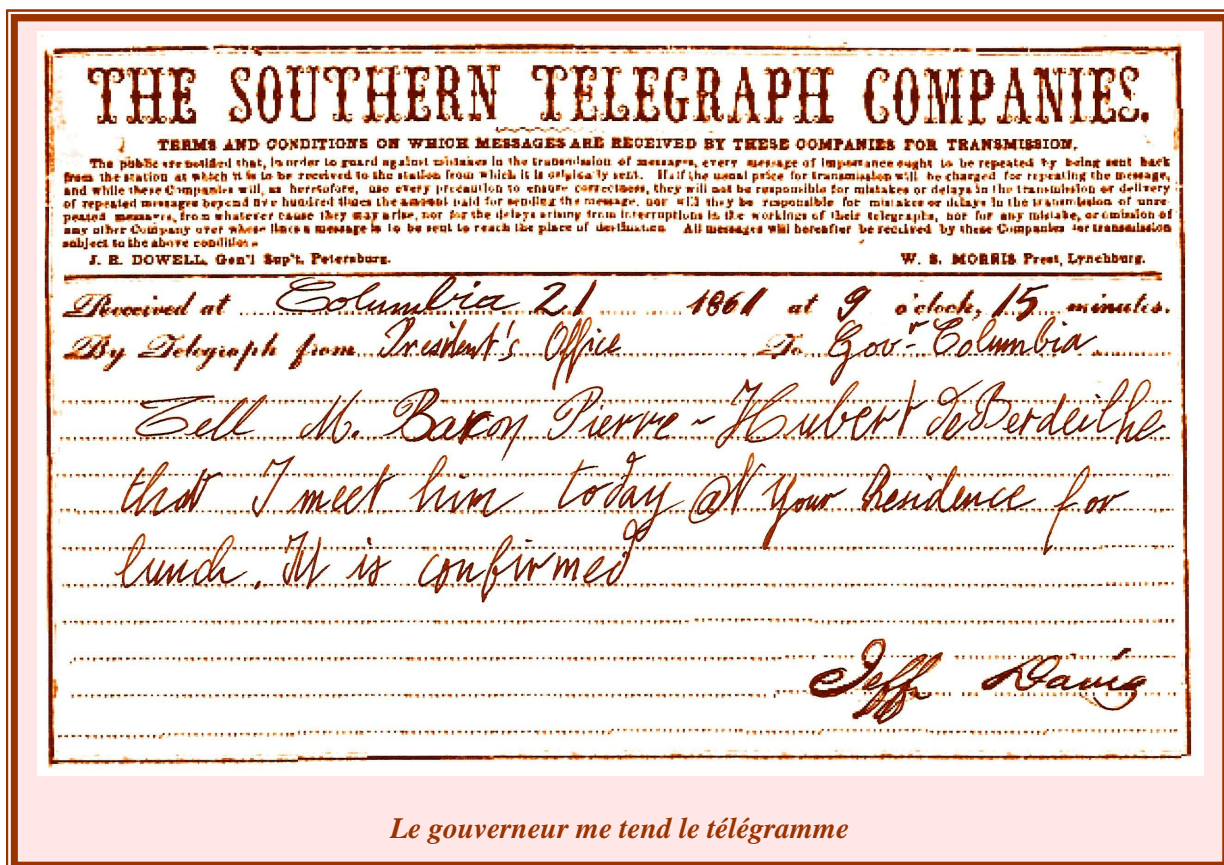 THE SOUTHERN TELEGRAPH COMPANIES.
TERMS AND CONDITIONS ON WHICH MESSAGES ARE RECEIVED BY THESE COMPANIES FOR TRANSMISSION.
The public are notified that, in order to guard against mistakes in the transmission of messages, every message of importance ought to be repeated by being sent back
from the station at which it is to be received to the station from which it is originally sent. Half the usual price for transmission will be charged for repeating the message,
and while these Companies will, as heretofore, use every precaution to ensure correctness, they will not be responsible for mistakes or delays in the transmission or delivery
of repeated messages beyond five hundred times the amount paid for sending the message, nor will they be responsible for mistakes or delays in the transmission of unre-
peated messages, from whatever cause they may arise, nor for the delays arising from interruptions in the workings of their telegraphs, nor for any mistake, or omission of
any other Company over whose lines a message is to be sent to reach the place of destination. All messages will hereafter be received by these Companies for transmission
subject to the above conditions
J. R. DOWELL, Gen'l Sup't, Petersburg. W. S. MORRIS Prest, Lynchburg.
Received at Columbia 21 1861 at 9 o'clock, 15 minutes.
By Telegraph from President's Office To Govr Columbia
Tell M. Baron Pierre-Hubert de Berdeilhe
that I meet him today @t your Residence for
lunch. It is confirmed
Jeff Davis
Le gouverneur me tend le télégramme